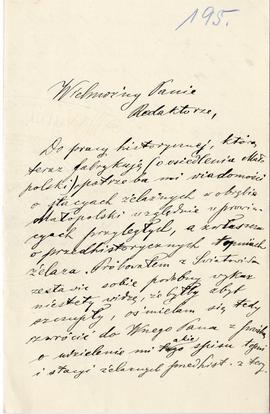 195.
Wielmożny Panie
Redaktorze,
Do pracy historycznej, którą
teraz fabrykuję (o osiedleniu Mało-
polski) potrzeba mi wiadomości
o stacyach żelaznych w obrębie
Małopolski względnie w prowin-
cyach przyległych, a zwłaszcza
o przedhistorycznych topniach
żelaza. Próbowałem z Światowida
zestawić sobie podobny wykaz
niestety widzę, że byłby zbyt
szczupły, ośmielam się tedy
zwrócić do Wnego Pana z prośbą
o udzielenie mi spisu tychi
i stacyi żelaznych przedhist. z